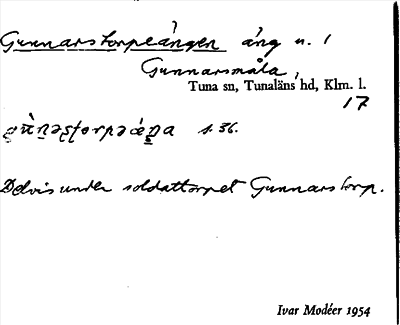 Gunnarstorpeängen äng n. 1
Gunnarsmåla,
Tuna sn, Tunaläns hd, Klm. l.
17
s. 36.
Delvis under soldattorpet Gunnarstorp.
Ivar Modéer 1954